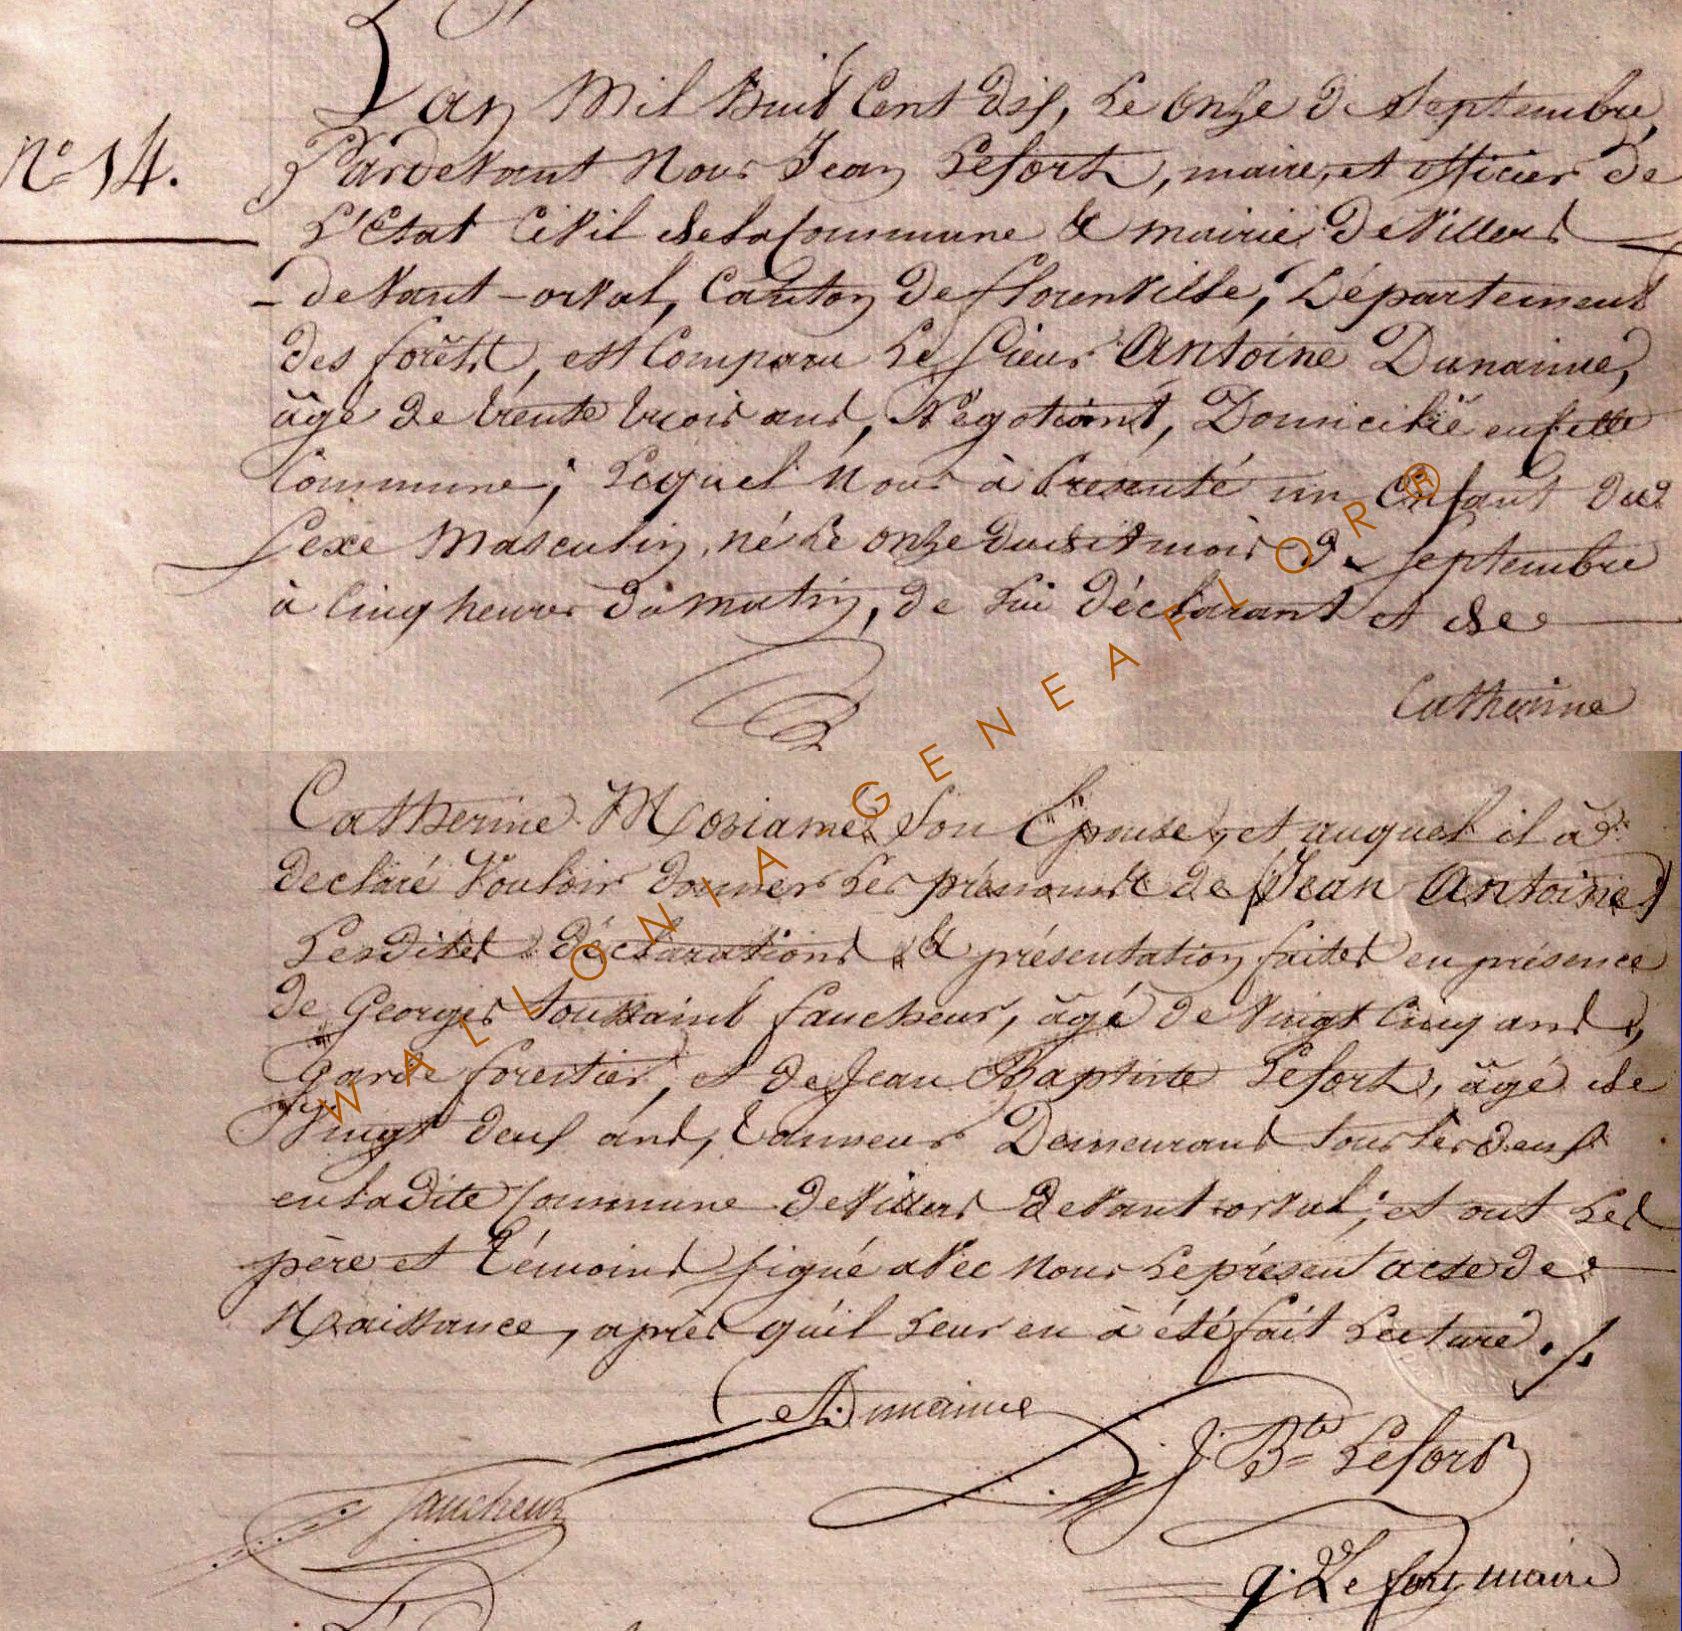 N° 14.
L'an Mil huit Cent dix, Le onze de Septembre,
Pardevant Nous Jean Lefort, maire, et officier de
L'Etat Civil de la Commune & mairie de Villers
- devant - orval, Canton de florenville, Département
des forêts, est Comparu Le Sieur Antoine Dumainne,
âgé de trente trois ans, Négotiant, Domicilié en cette
Commune; Lequel Nous à Presenté un Enfant du
Sexe Masculin, né Le onze dudit mois de Septembre
à Cinq heures du matin, de Lui Déclarant et de
Catherine
Catherine Moriame, Son Epouse, et auquel il à
declaré Vouloir donner Les prénoms de (Jean Antoine)
Lesdites déclarations & présentation faites en présence
de Georges toussaint faucheur, âgé de Vingt Cinq ans,
Garde forestier, et de Jean Baptiste Lefort, âgé de
Vingt deux ans, tanneur Demeurant tous les deux
en ladite Commune de Villers devant orval; et ont Les
père et témoins signé avec Nous Le présent acte de
Naissance, après qu'il Leur en à été fait Lecture ./.
A. Dumainne
J. Bte Lefort
faucheur
J. Lefort, maire
WALLONIA GENEAFLOR ®